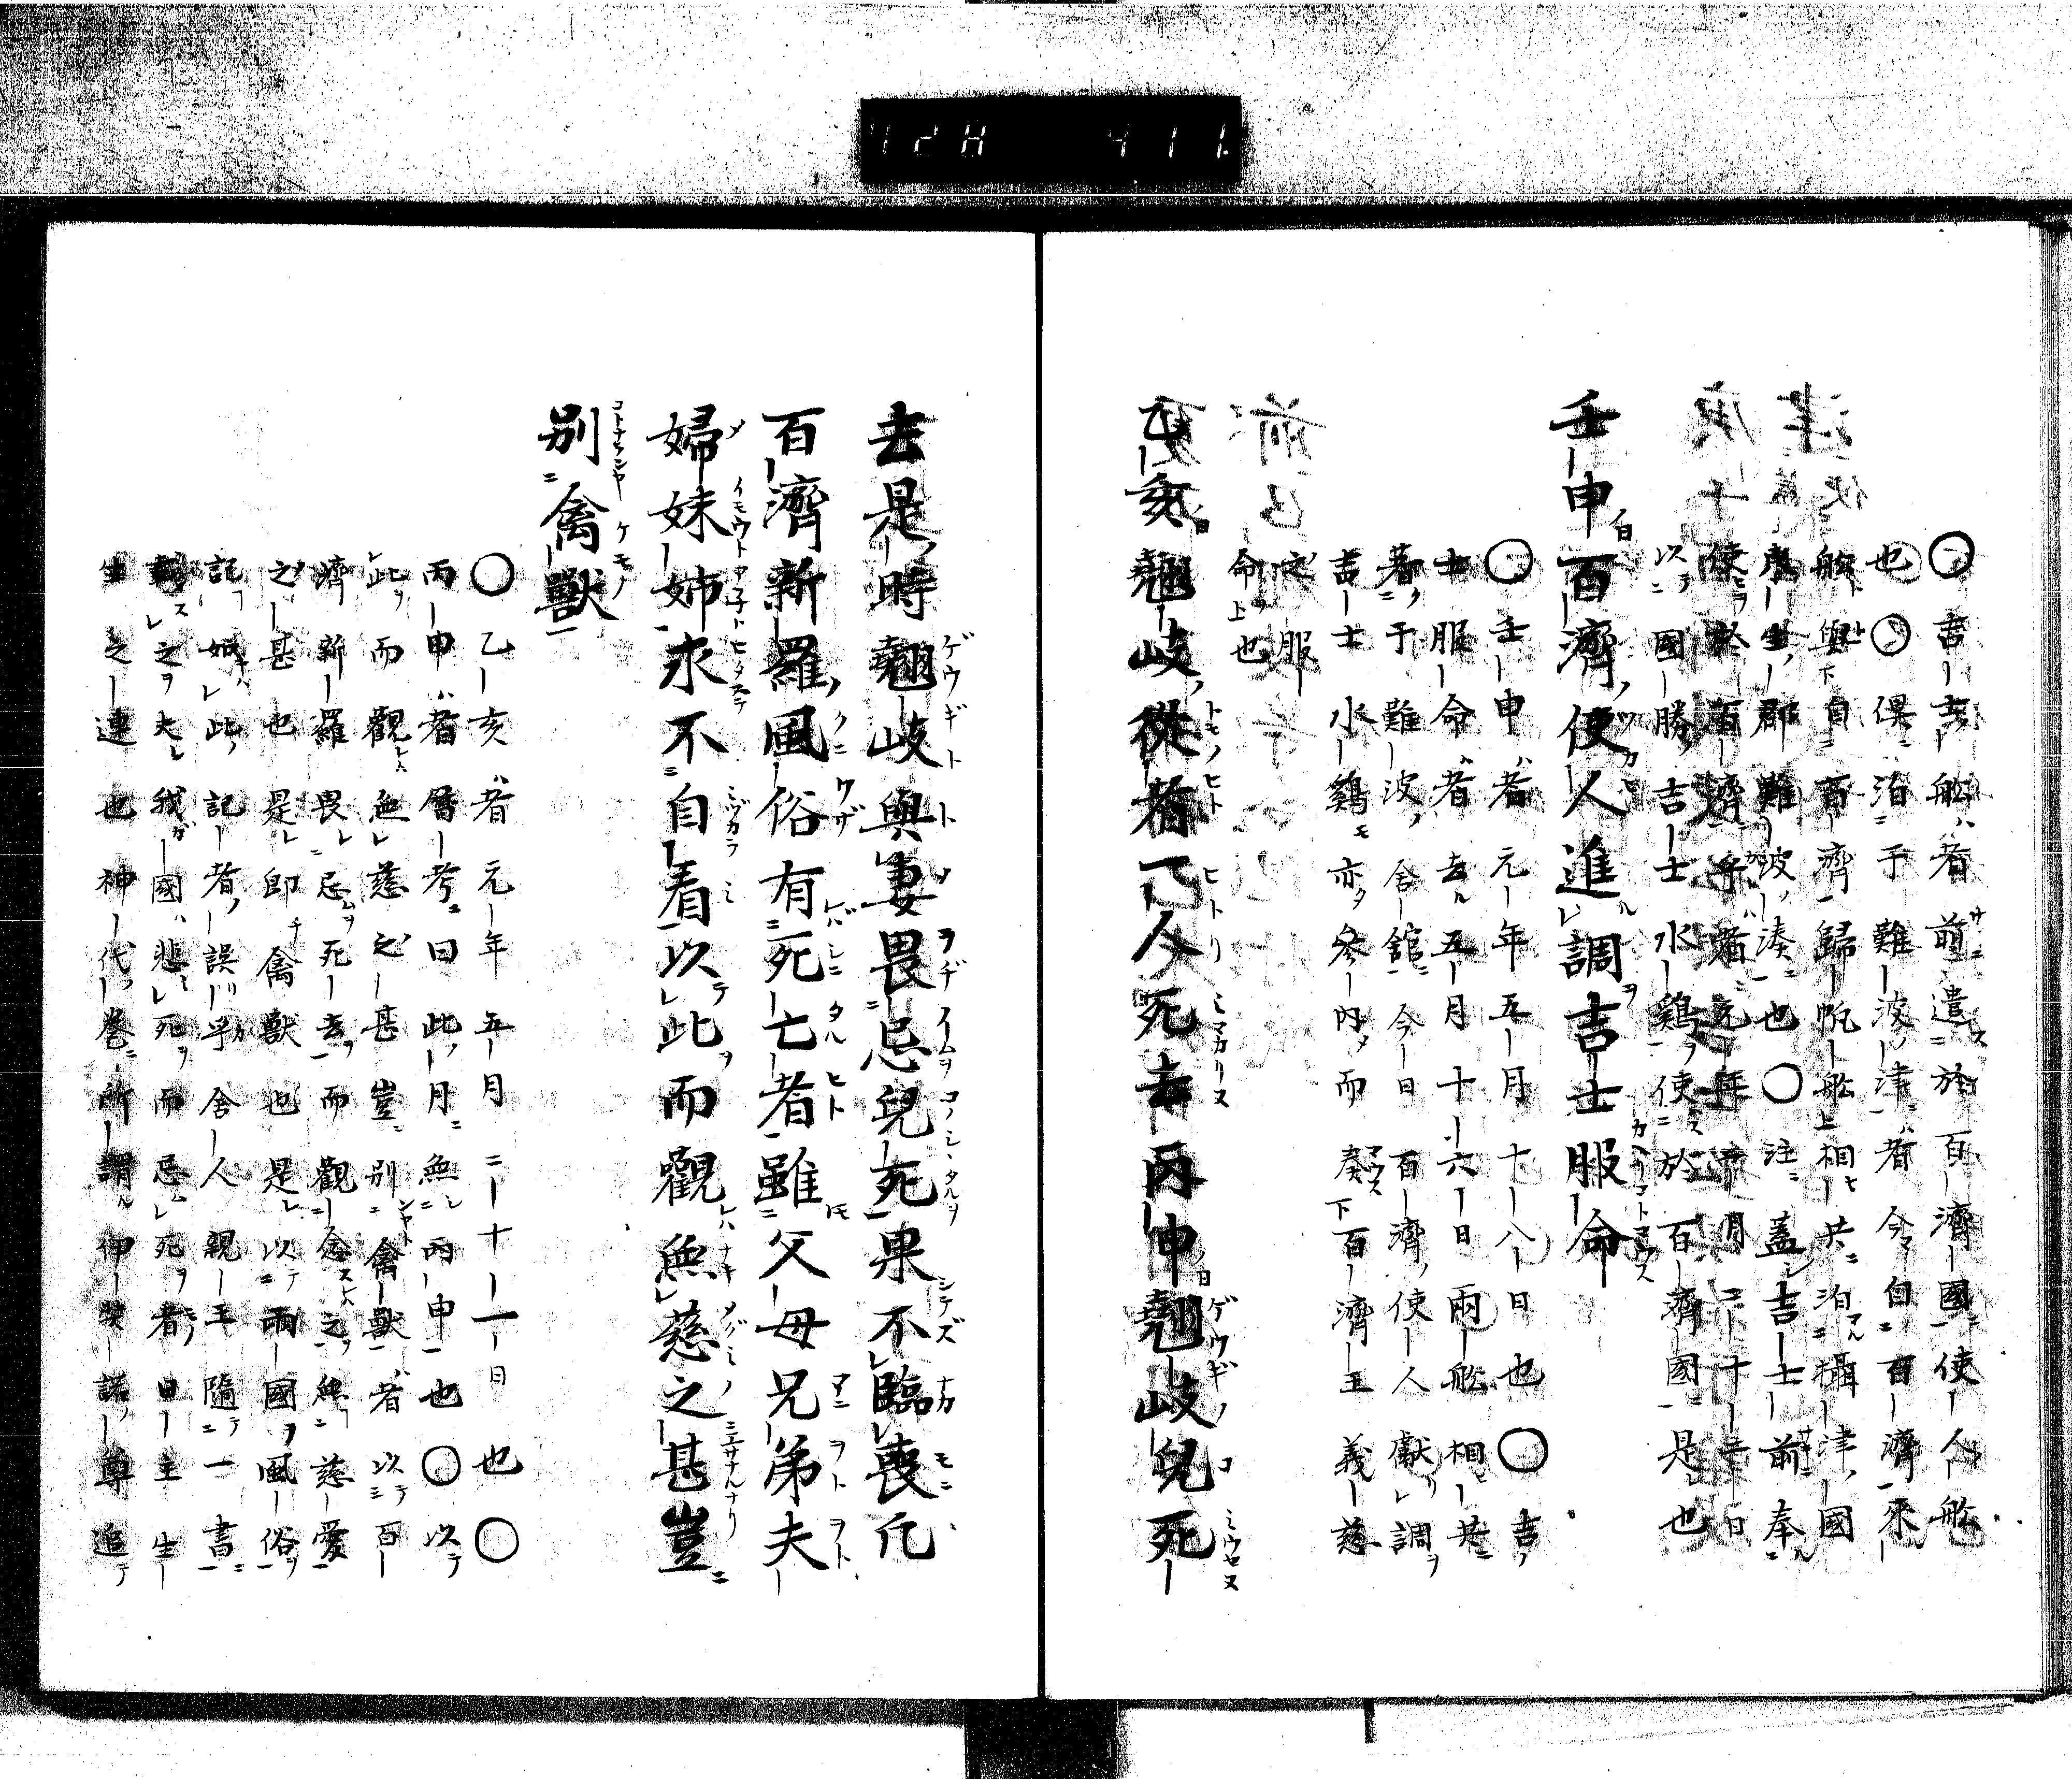 ○吉士舩者前遣於百濟國使人舩
也○俱泊于難波津者今自百濟來
舩與自百濟歸帆舩相共泊攝津國
生郡難波湊也○注蓋吉士前奉
使於百濟乎者元年二月二十二日
以國勝吉士水鷄使於百濟國是也
壬申百濟使人進調吉士服命
○壬申者元年五月十八日也○吉
士服命者去五月十六日兩舩相共
著于難波舍館今日百濟使人獻調
吉士水鷄亦參內而奏百濟王義慈
之服
命也
乙亥翹岐從者一人死去丙申翹岐兒死
去是時翹岐與妻畏忌兒死果不臨喪凡
百濟新羅風俗有死亡者雖父母兄弟夫
婦妹姉求不自看以此而觀無慈之甚豈
別禽獸
○乙亥者元年五月二十一日也○
丙申者曆考曰此月無丙申也○以
此而觀無慈之甚豈別禽獸者以百
濟新羅畏忌死去而觀念之無慈愛
之甚也是即禽獸也是以兩國風俗
記如此記者誤乎舍人親王隨一書
之夫我國悲死而忌死者日主生
生之連也神代卷所謂伊奘諾尊追
728 411